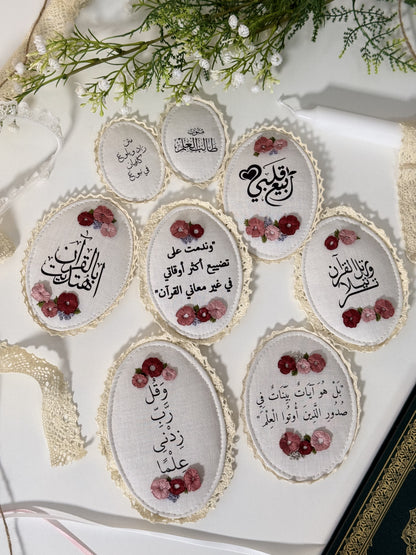 طالبة العلم
ربيع قلبي
بالقرآن
اهتديت
"وندمت على
تضييع أكثر أوقاتي
في غير معاني القرآن"
ورتل القرآن
ترتيلا
وَقُل
رَّبِّ
زِدْنِي
عِلْمًا
بَلْ هُوَ آيَاتٌ بَيِّنَاتٌ فِي
صُدُورِ الَّذِينَ أُوتُوا الْعِلْمَ